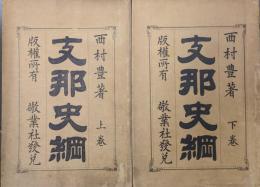 西村豊著
支那史綱 上卷
版權所有 敬業社發兌
西村豊著
支那史綱 下卷
版權所有 敬業社發兌